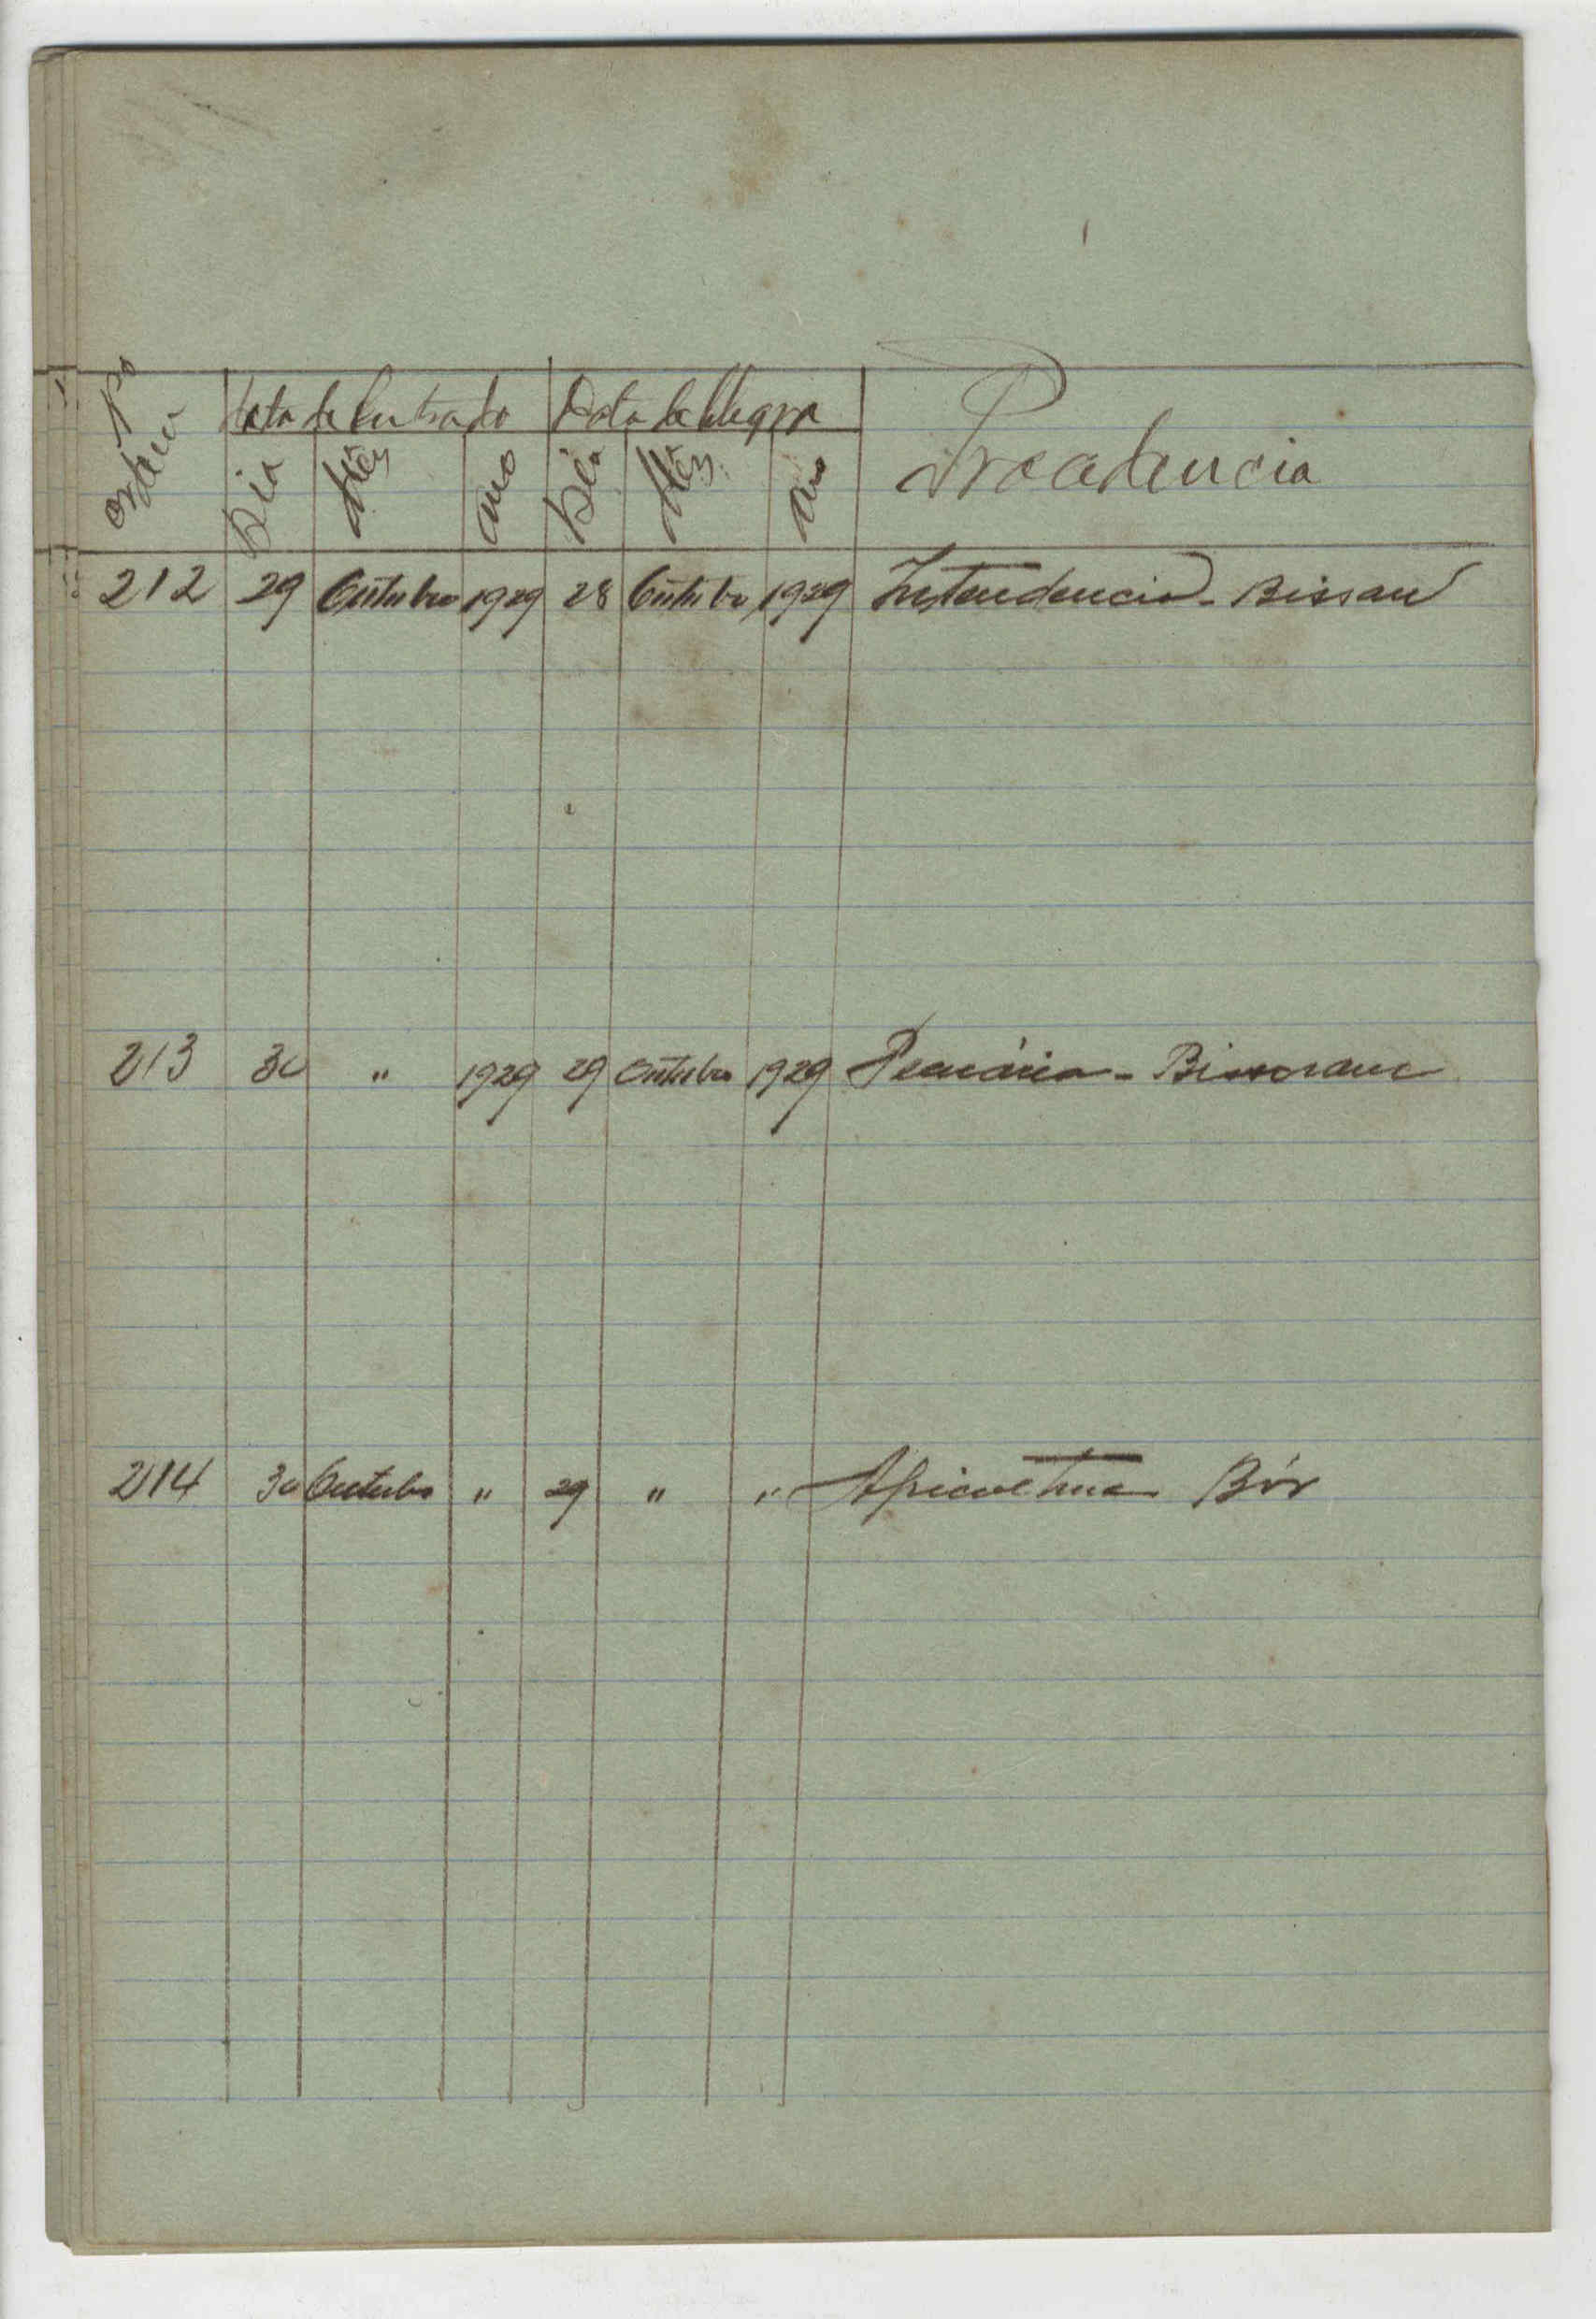 Nº ordem Data de Entrada Data de Procedencia
Dia Mês Ano Dia Mês Ano
212 29 Outubro 1929 28 Outubro 1929 Intendencia - Bissau
213 30 " 1929 29 Outubro 1929 Pecuária - Bissoram
214 30 Outubro " 29 " " Agricultura Bór